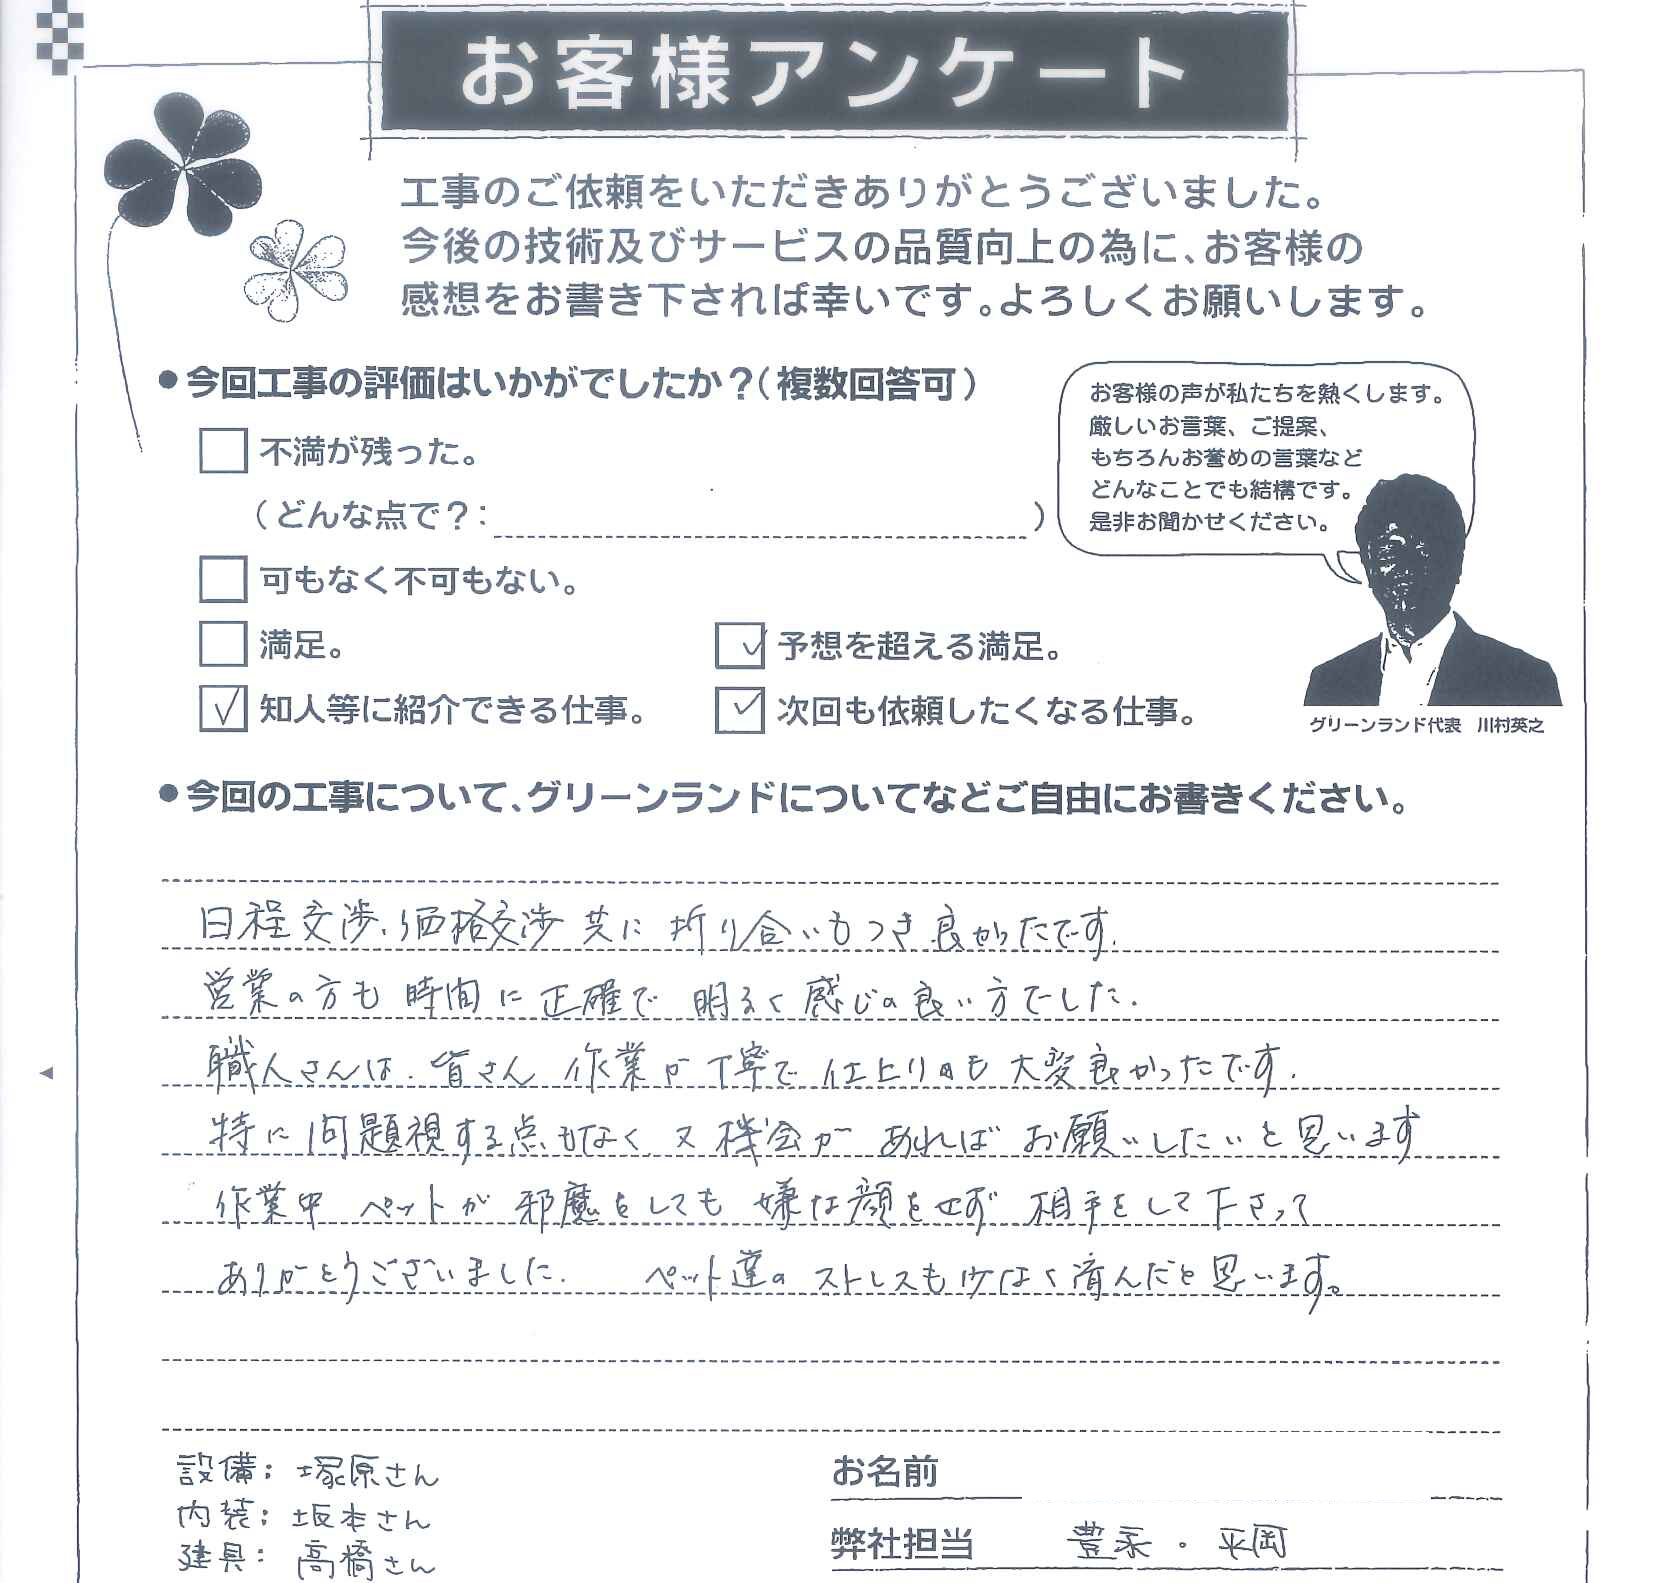 お客様アンケート
工事のご依頼をいただきありがとうございました。
今後の技術及びサービスの品質向上の為に、お客様の
感想をお書き下されば幸いです。よろしくお願いします。
●今回工事の評価はいかがでしたか？（複数回答可）
不満が残った。
（どんな点で？: ）
可もなく不可もない。
満足。
予想を超える満足。
知人等に紹介できる仕事。
次回も依頼したくなる仕事。
お客様の声が私たちを熱くします。
厳しいお言葉、ご提案、
もちろんお誉めの言葉など
どんなことでも結構です。
是非お聞かせください。
グリーンランド代表 川村英之
●今回の工事について、グリーンランドについてなどご自由にお書きください。
日程交渉、価格交渉 共に 折り合いもつき良かったです.
営業の方も 時間に正確で 明るく感じの良い方でした.
職人さんは、皆さん 作業が丁寧で仕上りのも大変良かったです.
特に問題視する点もなく 又機会が あればお願いしたいと思います
作業中 ペットが 邪魔をしても 嫌な顔をせず 相手をして下さって
ありがとうございました. ペット達の ストレスも少なく済んだと思います。
設備: 塚原さん
内装: 坂本さん
建具: 高橋さん
お名前
弊社担当 豊永・平岡